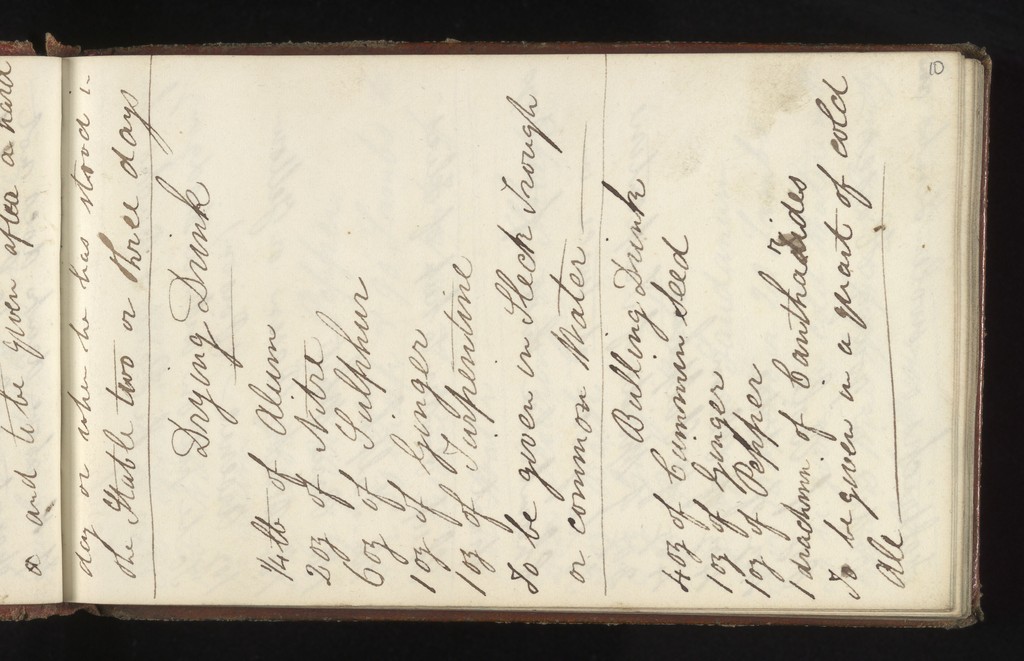 & and to be given after a hard
day or when he has stood i-
the Stable two or three days
Drying Drink
1/4 lb of Alum
2 oz of Nitre
6 oz of Sulphur
1 oz of Ginger
1 oz of Turpentine
To be given in Sleck Trough
or common Water
Bulling Drink
4 oz of Cummin seed
1 oz of Ginger
1 oz of Pepper
1 drachmn of Canthadides
To be given in a quart of cold
Ale
10